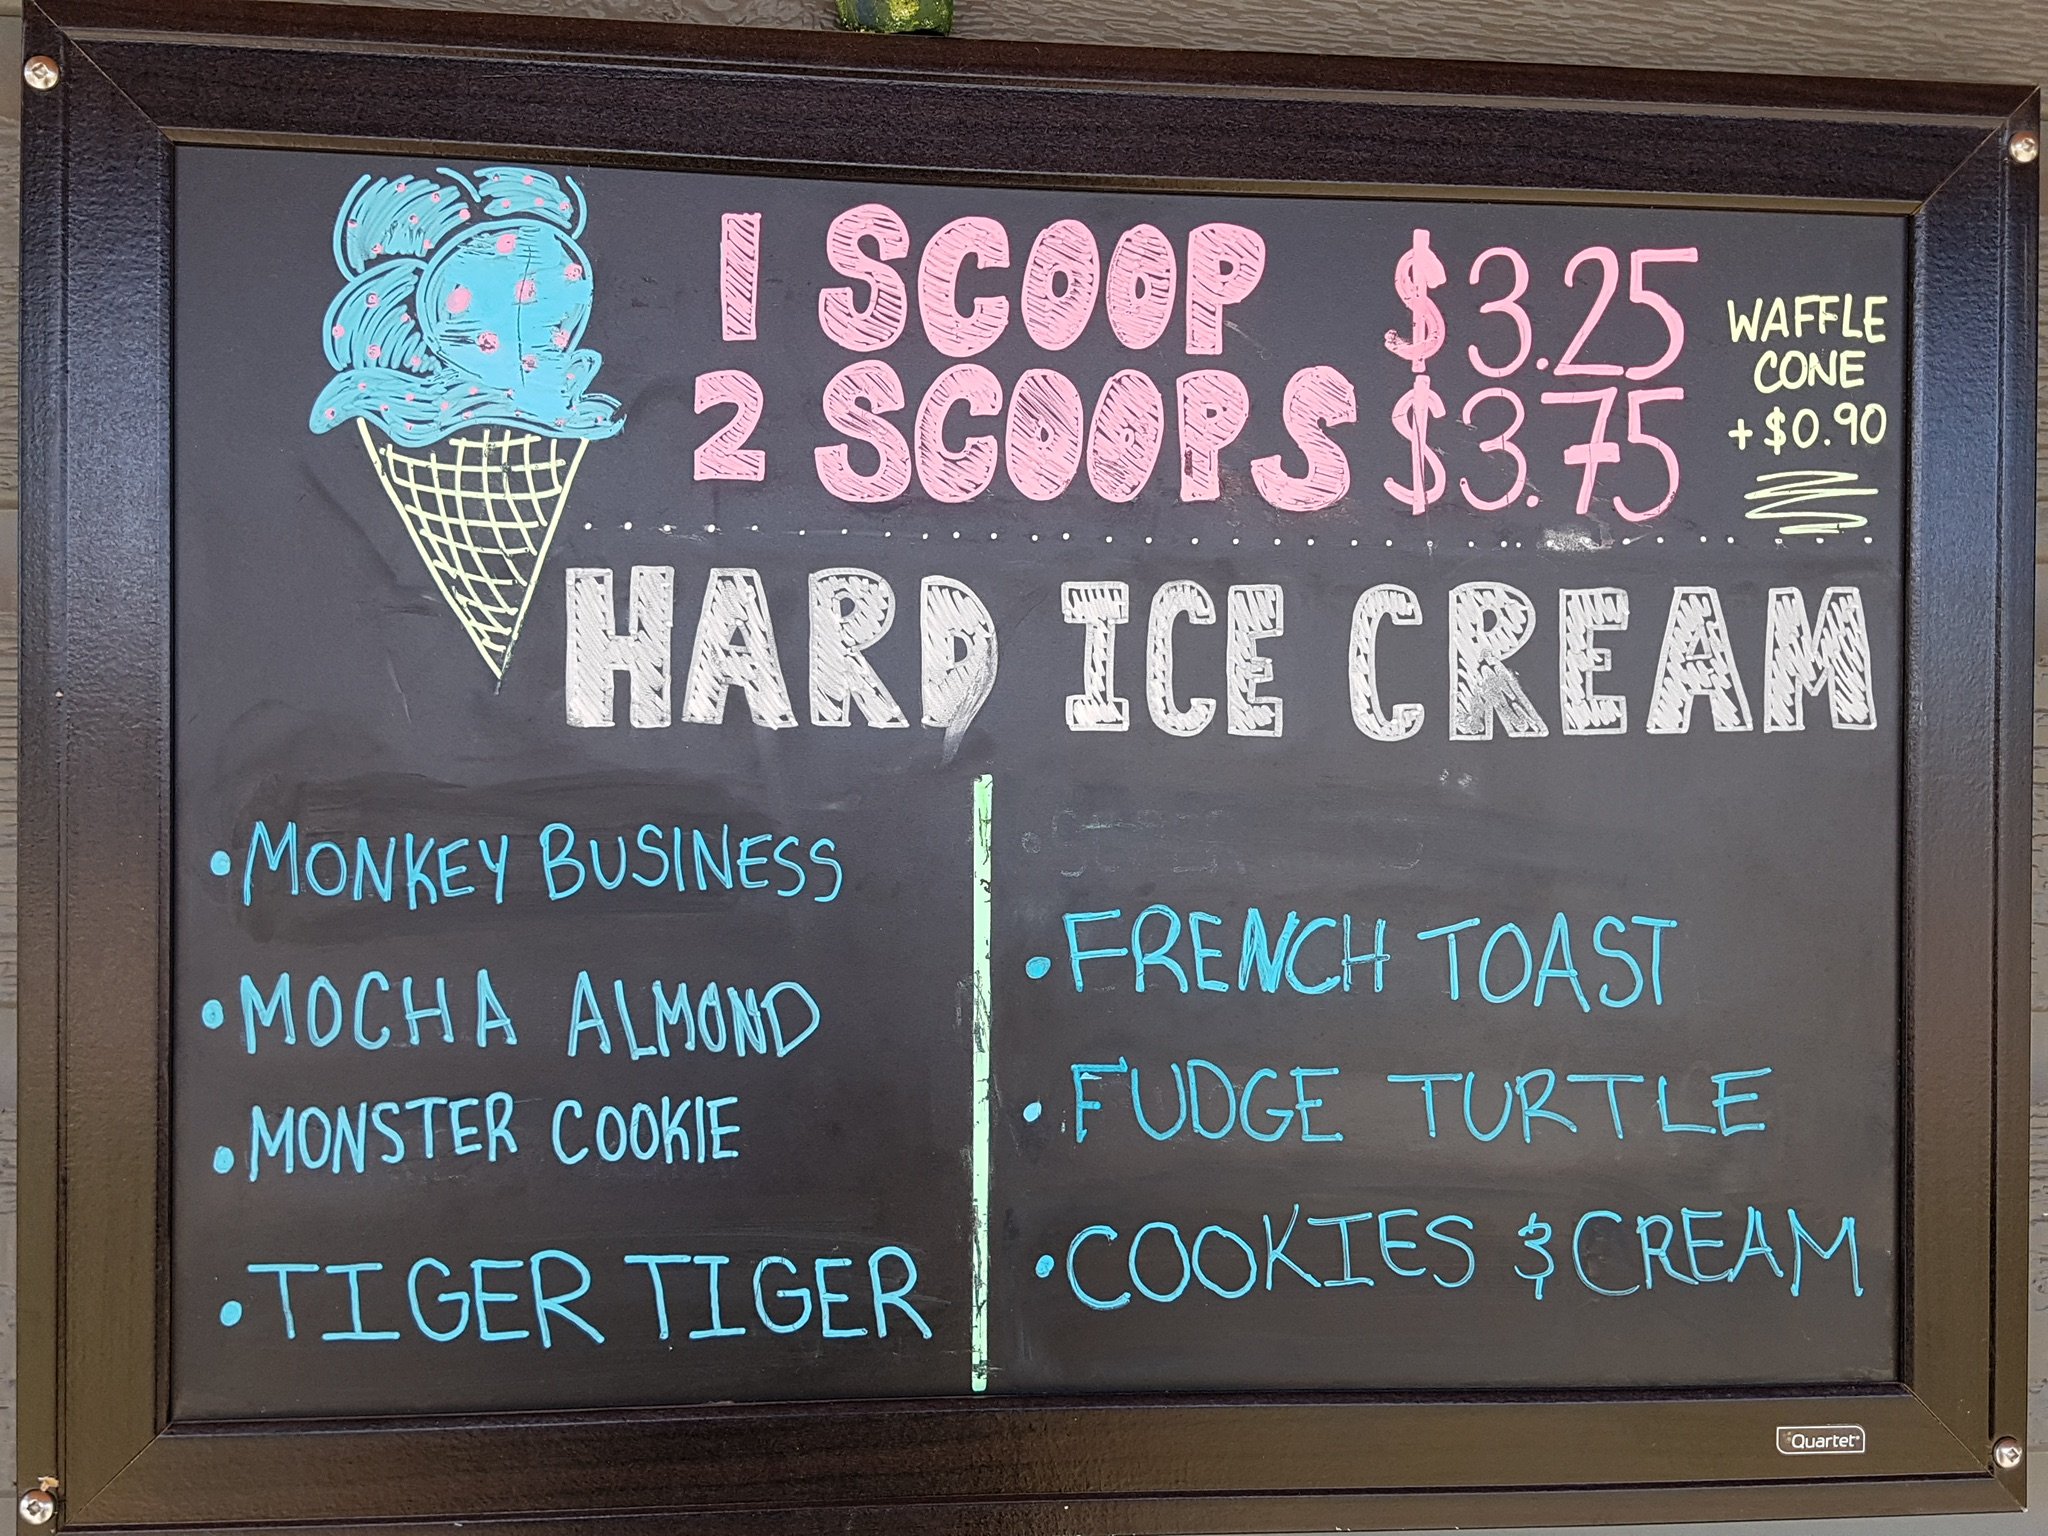 1 SCOOP $3.25
2 SCOOPS $3.75
WAFFLE
CONE
+ $0.90
HARD ICE CREAM
• MONKEY BUSINESS
• MOCHA ALMOND
• MONSTER COOKIE
• TIGER TIGER
• FRENCH TOAST
• FUDGE TURTLE
• COOKIES & CREAM
Quartet